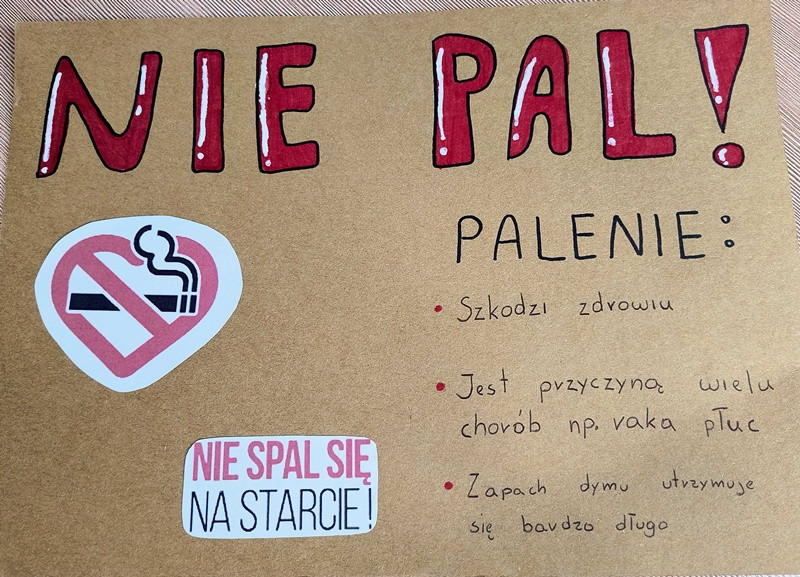 NIE PAL!
PALENIE:
• Szkodzi zdrowiu
• Jest przyczyną wielu
chorób np. raka płuc
• Zapach dymu utrzymuje
się bardzo długo
NIE SPAL SIĘ
NA STARCIE!